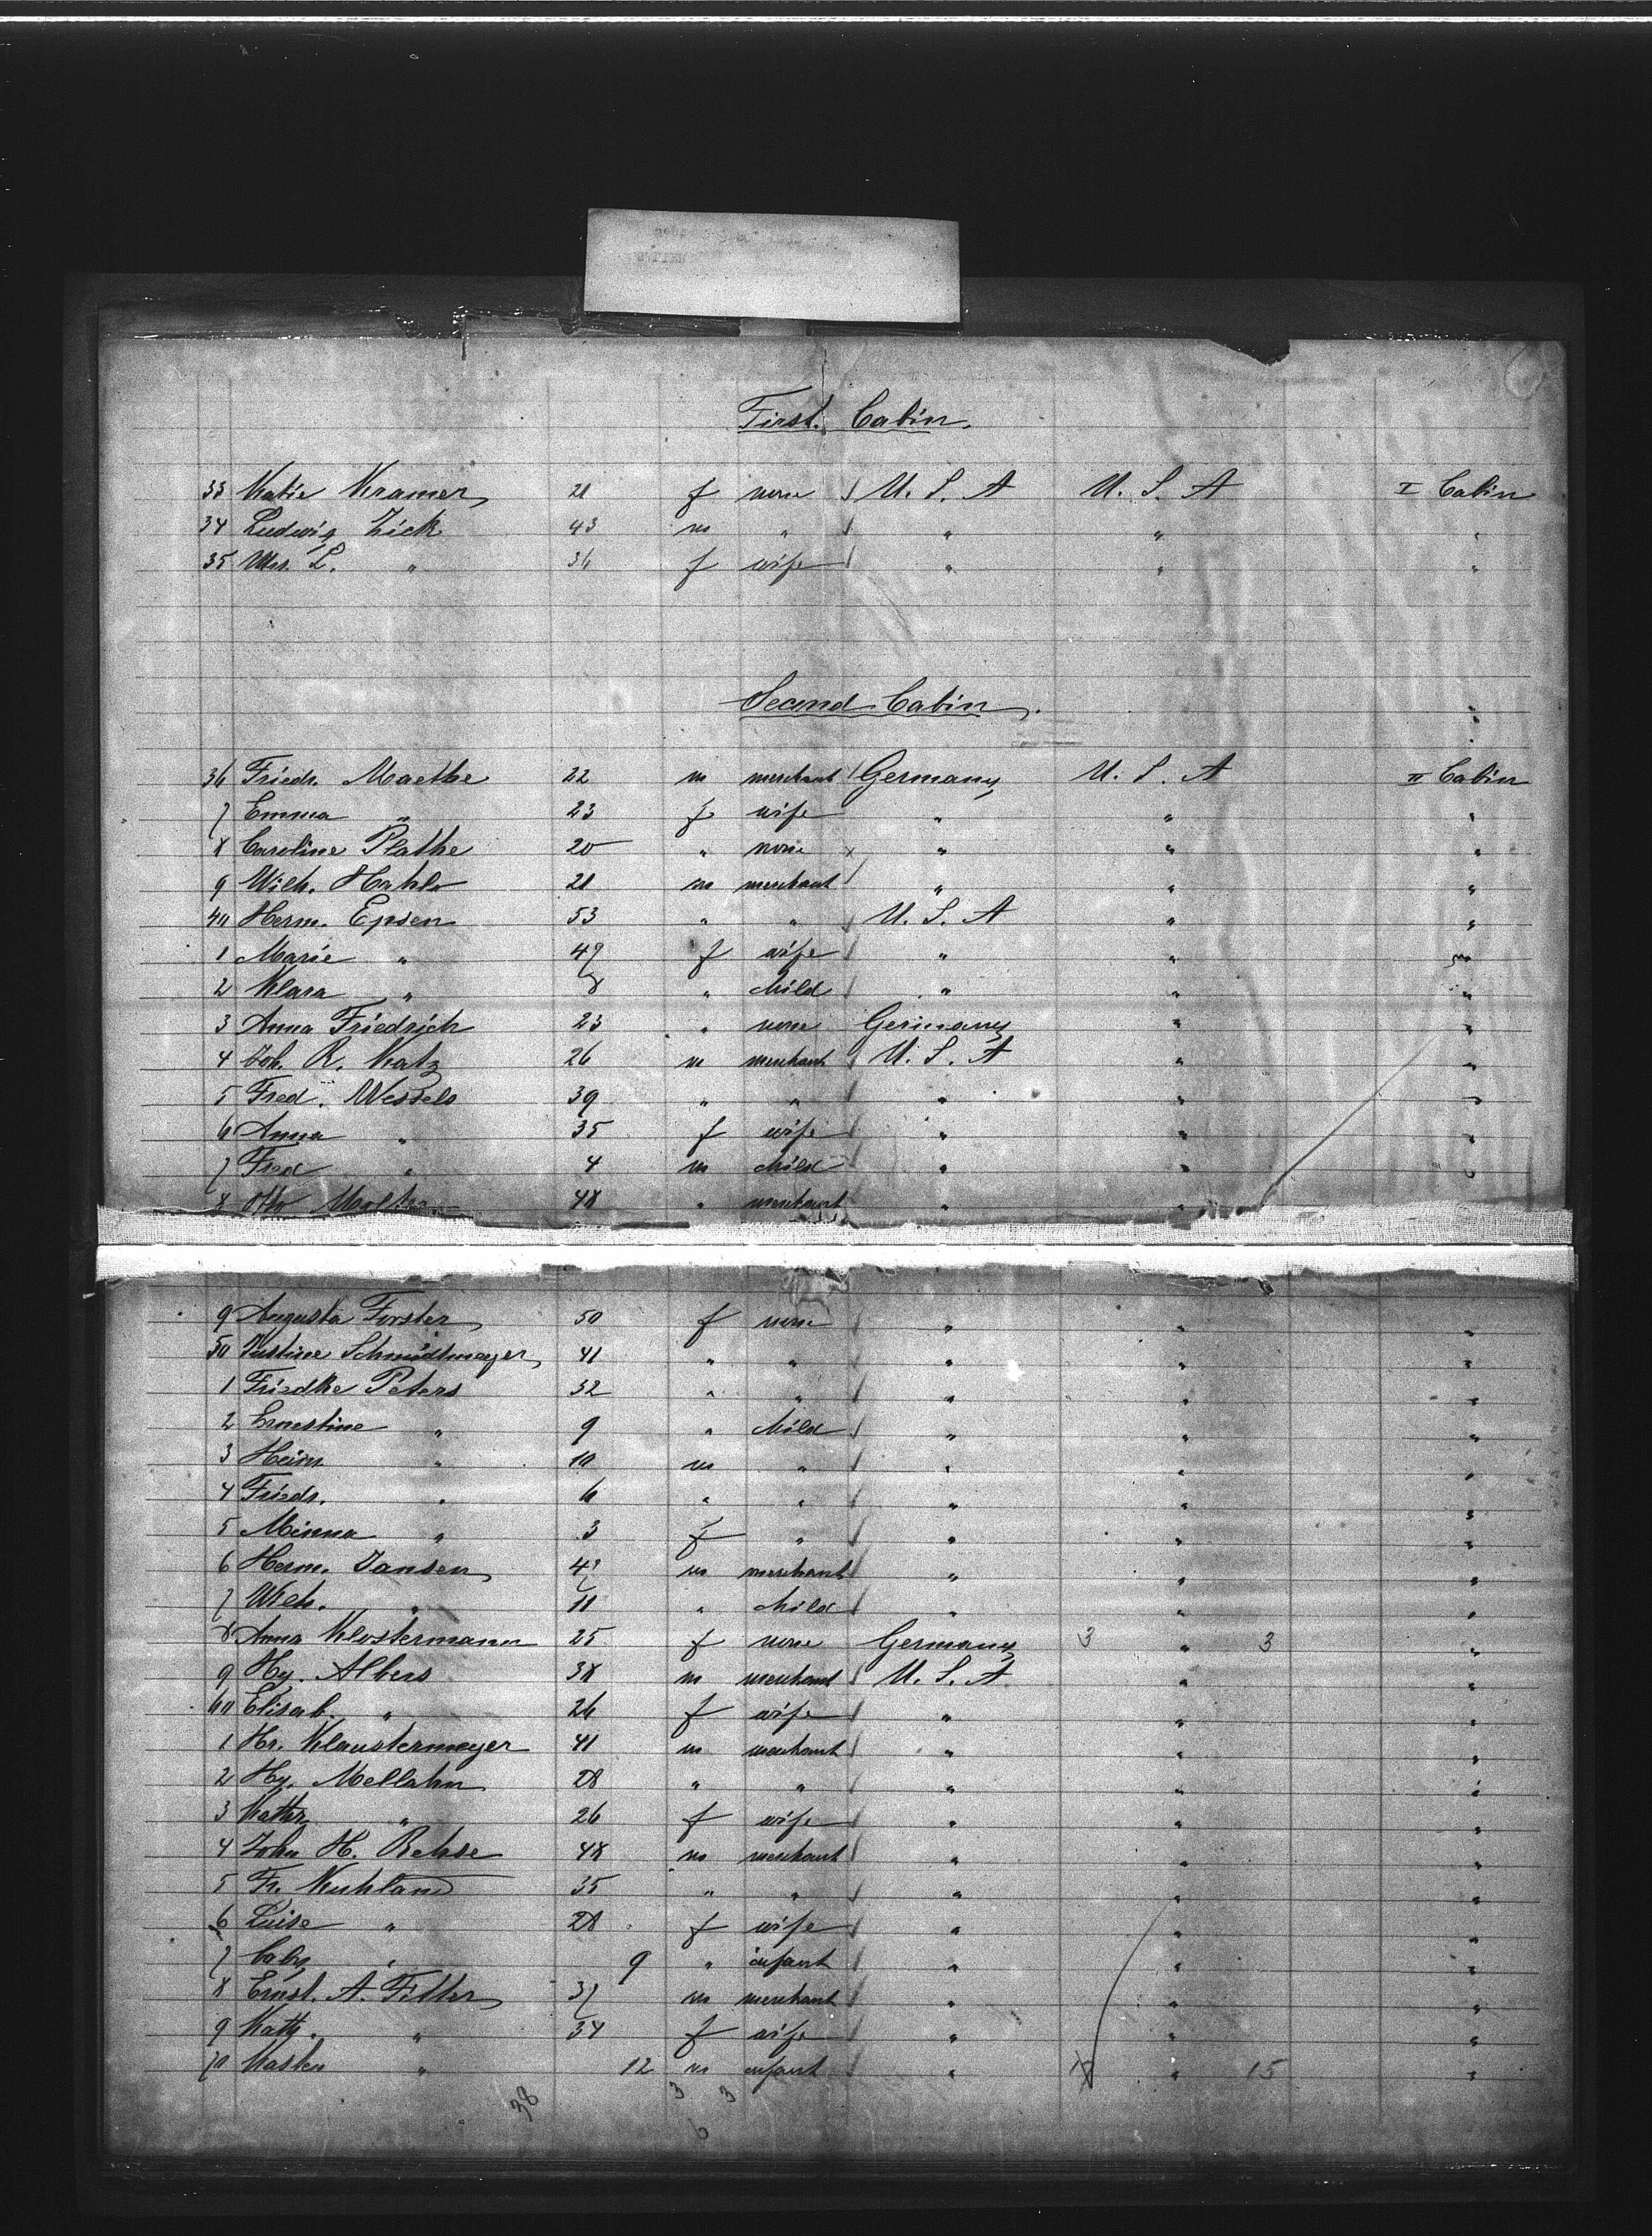 First Cabin.
33 Katie Kramer 21 f none U. S. A U. S. A I Cabin
34 Ludwig Zick 43 m " " " "
35 Mrs. L. " 36 f wife " " "
Second Cabin.
36 Friedr. Maethe 22 m merchant Germany U. S. A II Cabin
7 Emma " 23 f wife " " "
8 Caroline Plathe 20 " none " " "
9 Wilh. Hahlo 21 m merchant " " "
40 Herm. Epsen 53 " " U. S. A " "
1 Marie " 47 f wife " " "
2 Klara " 8 " child " " "
3 Anna Friedrich 23 " none Germany " "
4 Joh. R. Katz 26 m merchant U. S. A " "
5 Fred. Wessels 39 " " " " "
6 Anna " 35 f wife " " "
7 Fred " 4 m child " " "
8 Otto 48 " merchant " "
9 Augusta Forster 50 f none " " "
50 Justine Schmidtmeyer 41 " " " " "
1 Friedke Peters 32 " " " " "
2 Ernestine " 9 " child " " "
3 Heinr. " 10 m " " " "
4 Friedr. " 6 " " " " "
5 Minna " 3 f " " " "
6 Herm. Jansen m merchant " " "
7 Wilh. " 11 " child " " "
8 Anna Klostermann 25 f none Germany 3 " 3 "
9 Hy. Albers 38 m merchant U. S. A " "
60 Elisab. " 26 f wife " " "
1 Hr. Klaustermeyer 41 m merchant " " "
2 Hy. Mellahn 28 " " " " "
3 Kathr. " 26 f wife " " "
4 John H. Rehse 48 m merchant " " "
5 Fr. Kuhland 35 " " " " "
6 Luise " 28 f wife " " "
7 " 9 " infant " " "
8 Ernst. A. Filter 37 m merchant " " "
9 Kath. " 34 f wife " " "
70 " 12 m infant " " 15 "
38 3 3
6